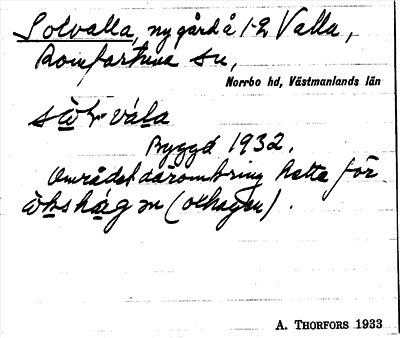 Solvalla, ny gård å 1-2 Valla,
Romfartuna sn,
Norrbo hd, Västmanlands län
Byggd 1932.
Området däromkring hette för
(oxhagen).
A. THORFORS 1933